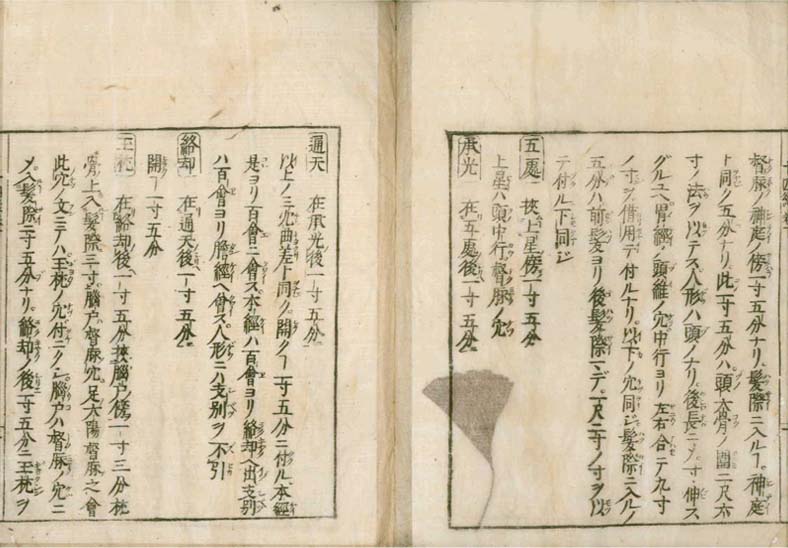 督脉ノ神庭ノ傍一寸五分ナリ髪際ニ入ルヿ神庭
ト同ク五分ナリ此一寸五分ハ頭ノ大骨ノ囲二尺六
寸ノ法ヲ以テス人形ハ頭ノナリ後長ニメ寸伸ス
グルユヘ胃經ノ頭維ノ穴中行ヨリ左右合テ九寸
ノ寸ヲ借用テ付ルナリ以下ノ穴同シ髪際ニ入ルノ
五分ハ前髪ヨリ後髪際マデ一尺二寸ノ寸ヲ以
テ付ル下同シ
五處 挾上星傍一寸五分
上星ハ頭中行督脉ノ穴
承光 在五處後一寸五分
通天 在承光後一寸五分
以上ノ三穴曲差ト同ク開クヿ一寸五分ニ付ル本經
是ヨリ百會ニ會ス本經ハ百會ヨリ絡却ヘ出支別
ハ百會ヨリ膽經ヘ會ス人形ニハ支別ヲ不引
絡却 在通天後一寸五分
開ヿ一寸五分
玉枕 在絡却後一寸五分挾腦戸傍一寸三分枕
骨上入髪際三寸腦戸督脉穴足太陽督脉之會
此穴ノ文ニテハ玉枕ノ穴付ニクシ腦戸ハ督脉ノ穴ニ
メ入髪際二寸五分ナリ絡却ノ後一寸五分ニ玉枕ヲ